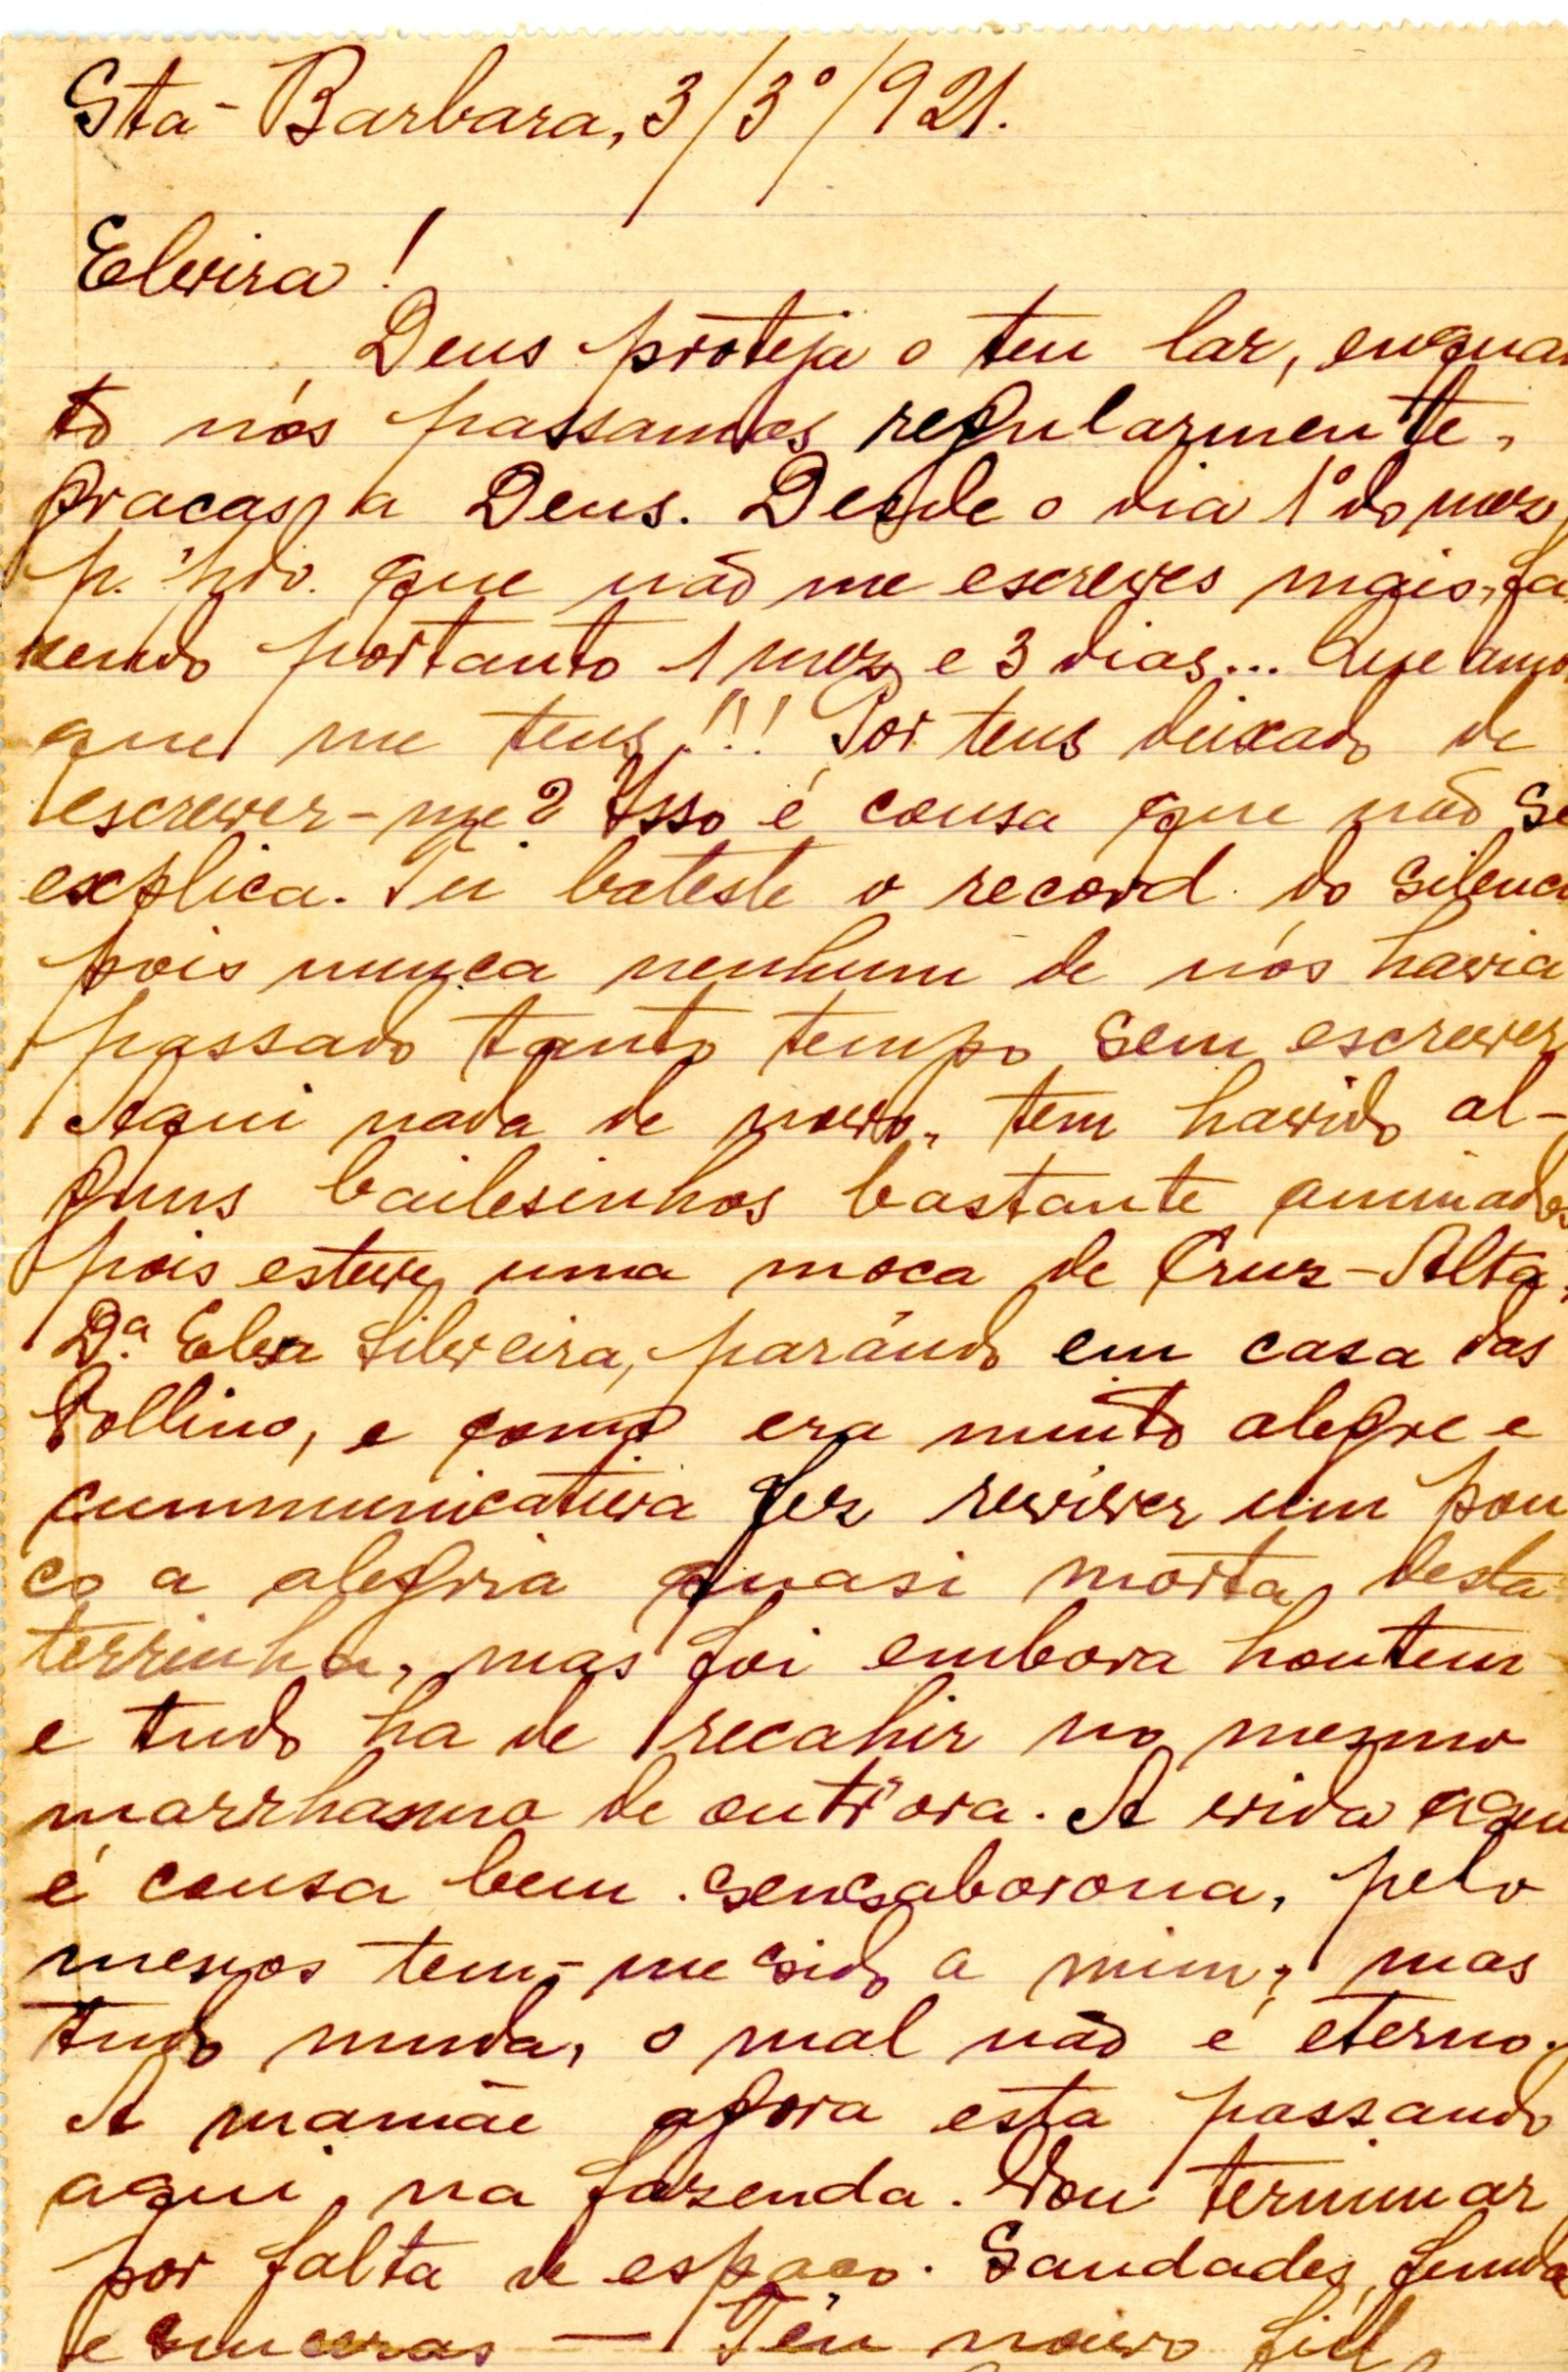 Sta-Barbara, 3/3º/921.
Elvira!
Deus proteja o teu lar, enquan
to nós passamos regularmente,
graças a Deus. Desde o dia 1º do mez
p. pdo. que não me escreves mais, fa
zendo portanto 1 mez e 3 dias... Que amor
que me tens!!! Por tens deixado de
escrever-me? Isso é cousa que não se
explica. Tu bateste o record do silenci
pois nunca nenhum de nós havia
passado tanto tempo sem escrever
Aqui nada de novo, tem havido al-
guns bailesinhos bastante animados
pois esteve uma moça de Cruz-Alta,
Dª Elsa Silveira, parándo em casa das
Pollino, e como era muito alegre e
cummunicativa fez reviver um pou
co a alegria quasi morta desta
terrinha, mas foi embora hontem
e tudo ha de recahir no mesmo
marrhasmo de outr'ora. A vida aqu
é cousa bem sensaborona, pelo
menos tem-me sido a mim; mas
tudo muda, o mal não é eterno.
A mamãe agora esta passando
aqui na fazenda. Vou terminar
por falta de espaço. Saudades funda
e sinceras — Teu noivo fiel,